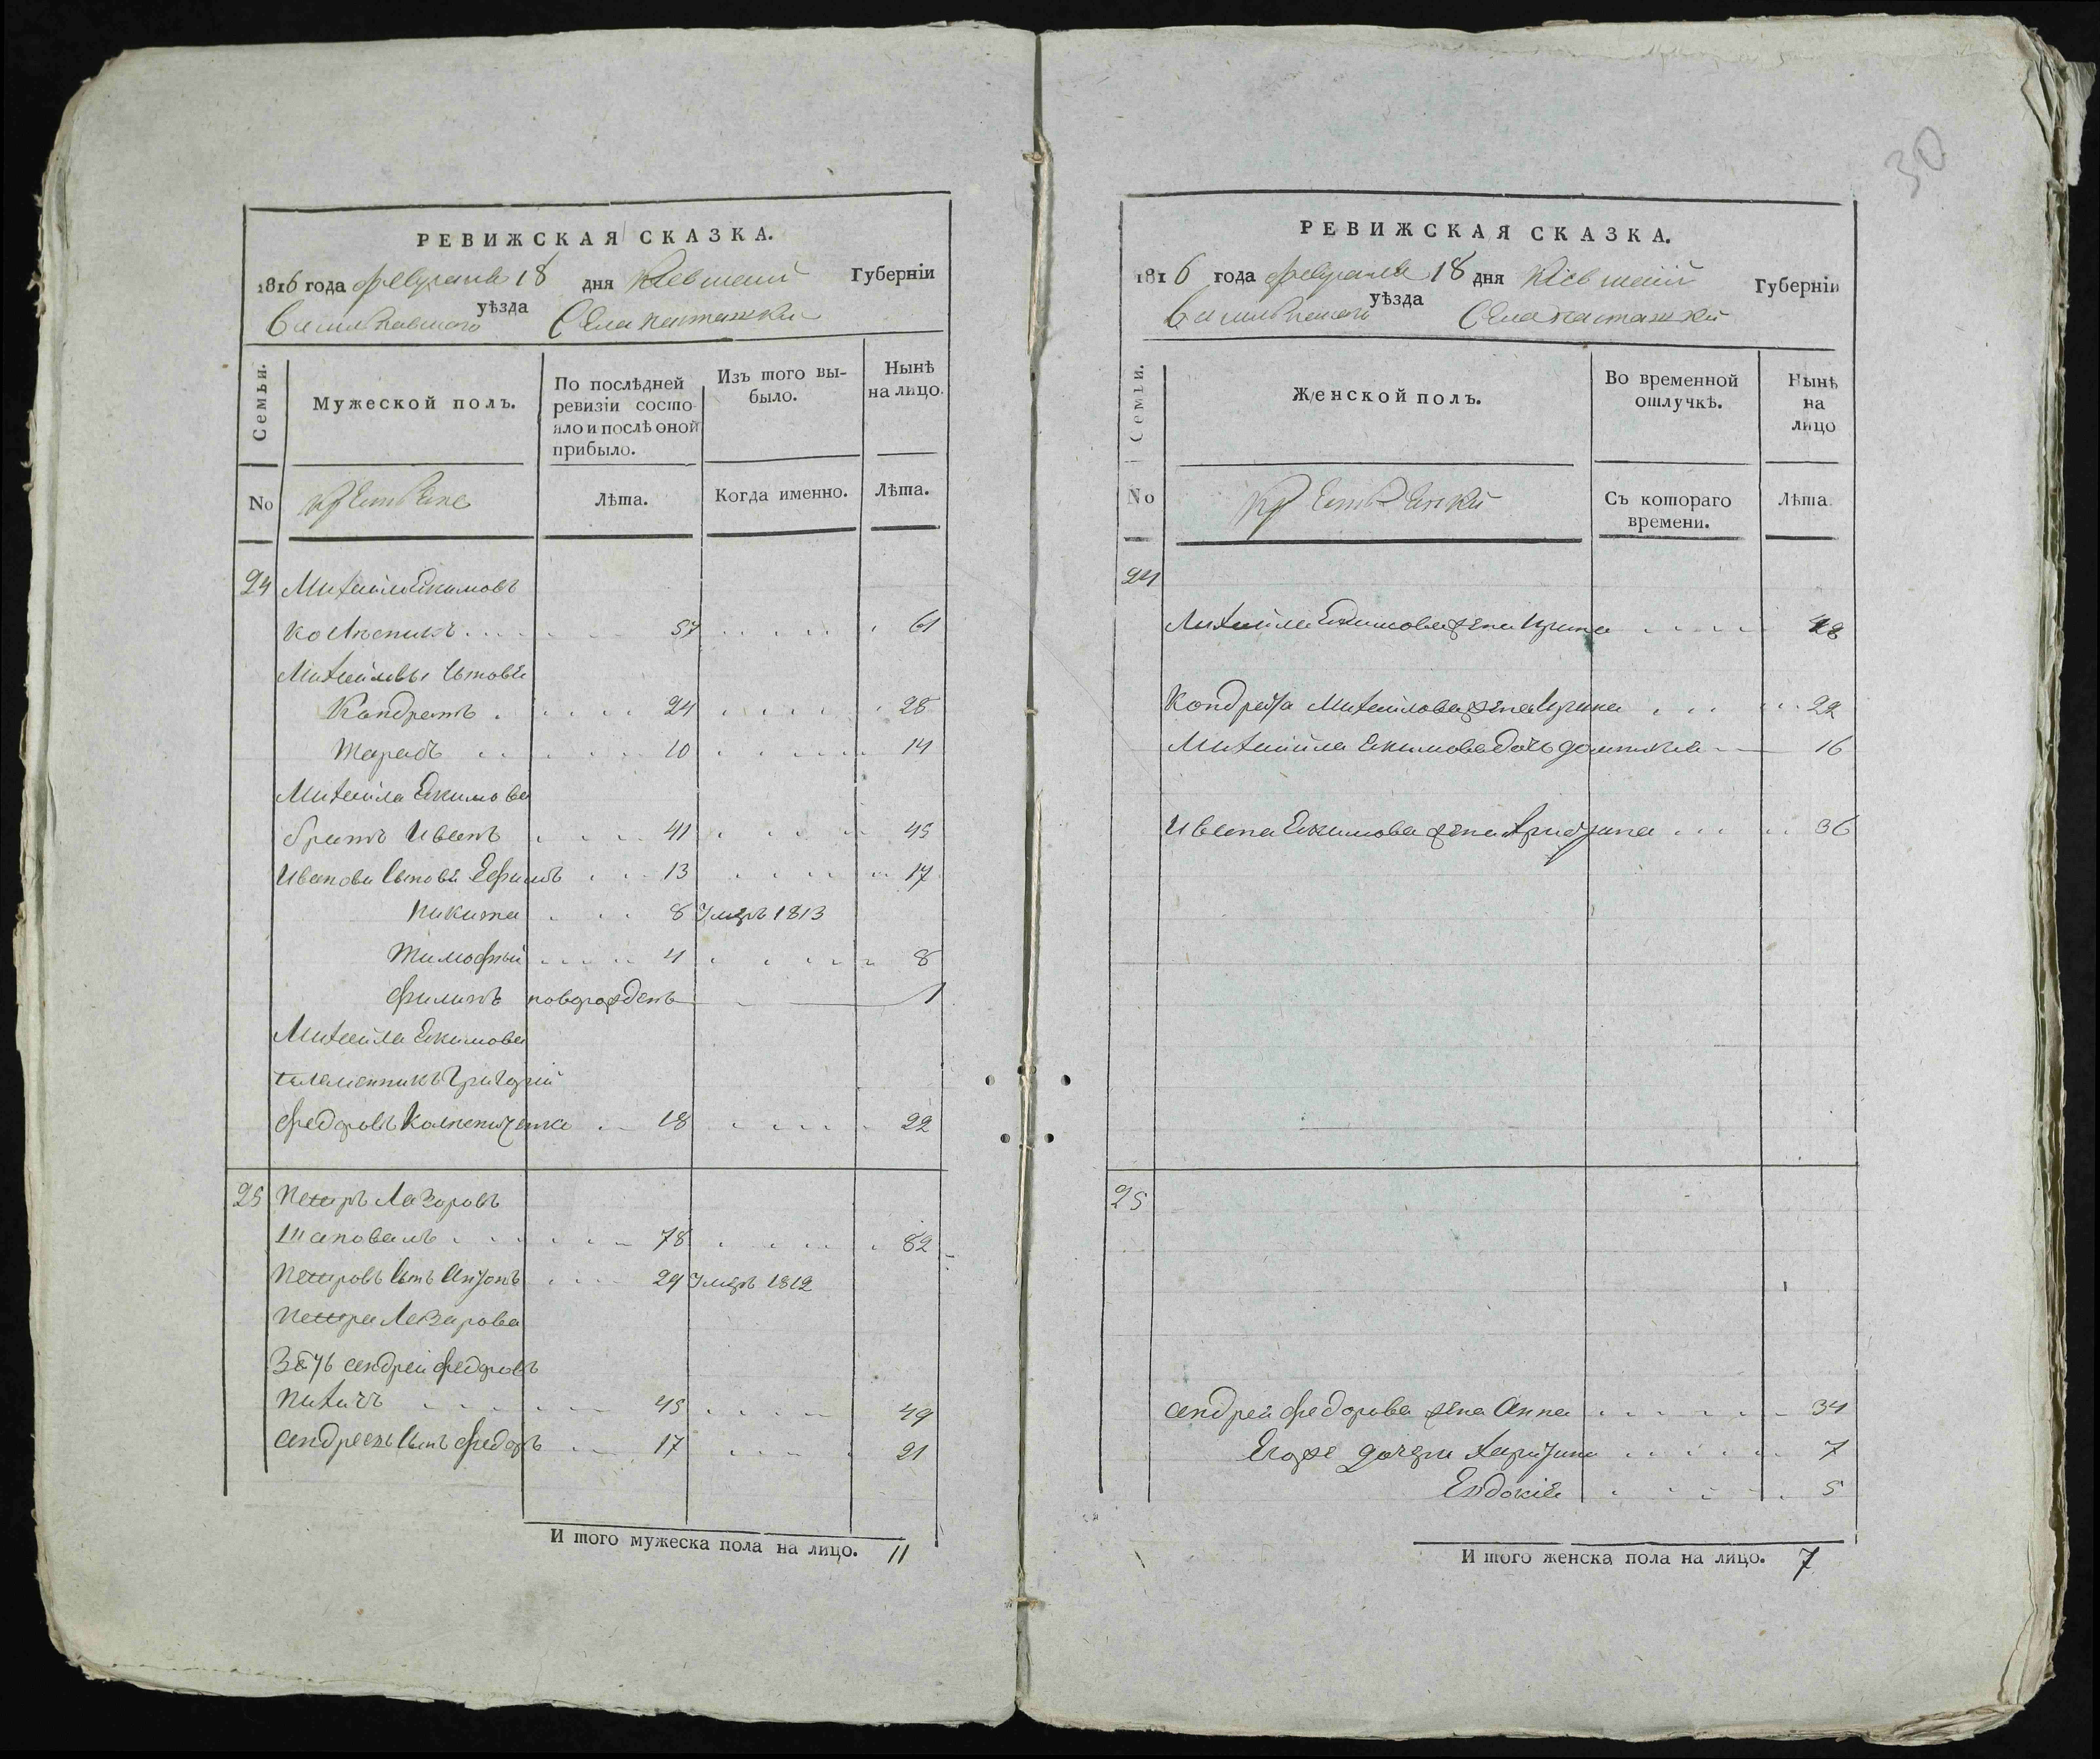 30
РЕВИЖСКАЯ СКАЗКА.
1816 года февраля 18 дня Киевской Губернїи
Василковского уѣзда Села пашашки
Семьи.
Мужеской полъ.
По послѣдней ревизїи состояло и послѣ оной прибыло.
Изъ того выбыло.
Нынѣ на лицо.
No
крестяне
Лѣта.
Когда именно.
Лѣта.
24 Михайло Екимовъ
57 61
Михайловы сыновя
Кондратъ 24 28
Тарасъ 10 14
Михайла Екимова
братъ Иванъ 41 45
Ивановы сыновя Ефимъ 13 17
Никита 8 умеръ 1813
Тимофѣй 4 8
Филипъ новорожденъ 1
Михайла Екимова
племенникъ Григорій
Федоровъ 18 22
25 Петръ Лазоровъ
Шаповалъ 78 82
Петровъ сынъ Антонъ 29 умеръ 1812
Петра Лазарова
Зять андрей федоровъ
45 49
андреевъ сынъ федоръ 17 21
И того мужеска пола на лицо. 11
РЕВИЖСКАЯ СКАЗКА.
1816 года февраля 18 дня Киевской Губернїи
Василковской уѣзда Села пашашки
Семьи.
Женской полъ.
Во временной отлучкѣ.
Нынѣ на лицо
No
крестянки
Съ котораго времени.
Лѣта.
24
Михайла Екимова жена Ирина 48
Кондрата Михайлова жена Ирина 22
Михайла Екимова дочь домникия 16
Ивана Екимова жена Христина 36
25
андрея федорова жена Анна 34
Егоже дочери Харитина 7
Евдокїя 5
И того женска пола на лицо. 7